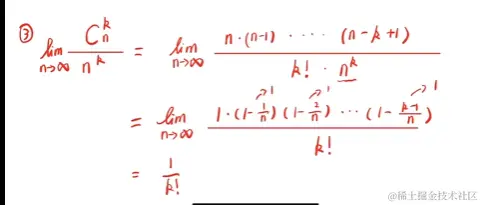 ③ lim n→∞ C_n^k / n^k = lim n→∞ n·(n-1)·····(n-k+1) / k!·n^k
= lim n→∞ 1·(1-1/n)→1 (1-2/n)→1 ··· (1-(k-1)/n)→1 / k!
= 1/k!
@稀土掘金技术社区